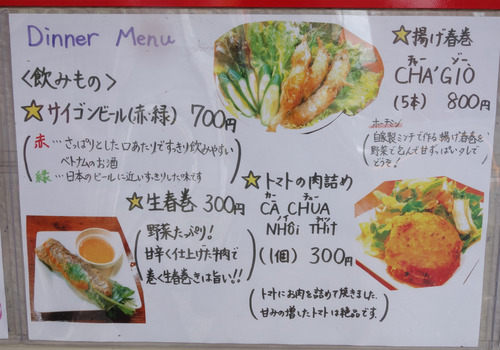 Dinner Menu
<飲みもの>
★サイゴンビール(赤・緑) 700円
赤…さっぱりとした口あたりですっきり飲みやすい
ベトナムのお酒
緑…日本のビールに近いすっきりした味です
★揚げ春巻
チャー ゾー
CHẢ GIÒ
(5本) 800円
自家製ミンチで作る揚げ春巻を
野菜で包んで甘ずっぱいタレで
どうぞ!
★生春巻 300円
野菜たっぷり!
甘辛く仕上げた牛肉で
巻く生春巻きは旨い!!
★トマトの肉詰め
カー チュー
CÀ CHUA
ノイ
NHồi THịT
(1個) 300円
トマトにお肉を詰めて焼きました。
甘みの増したトマトは絶品です。